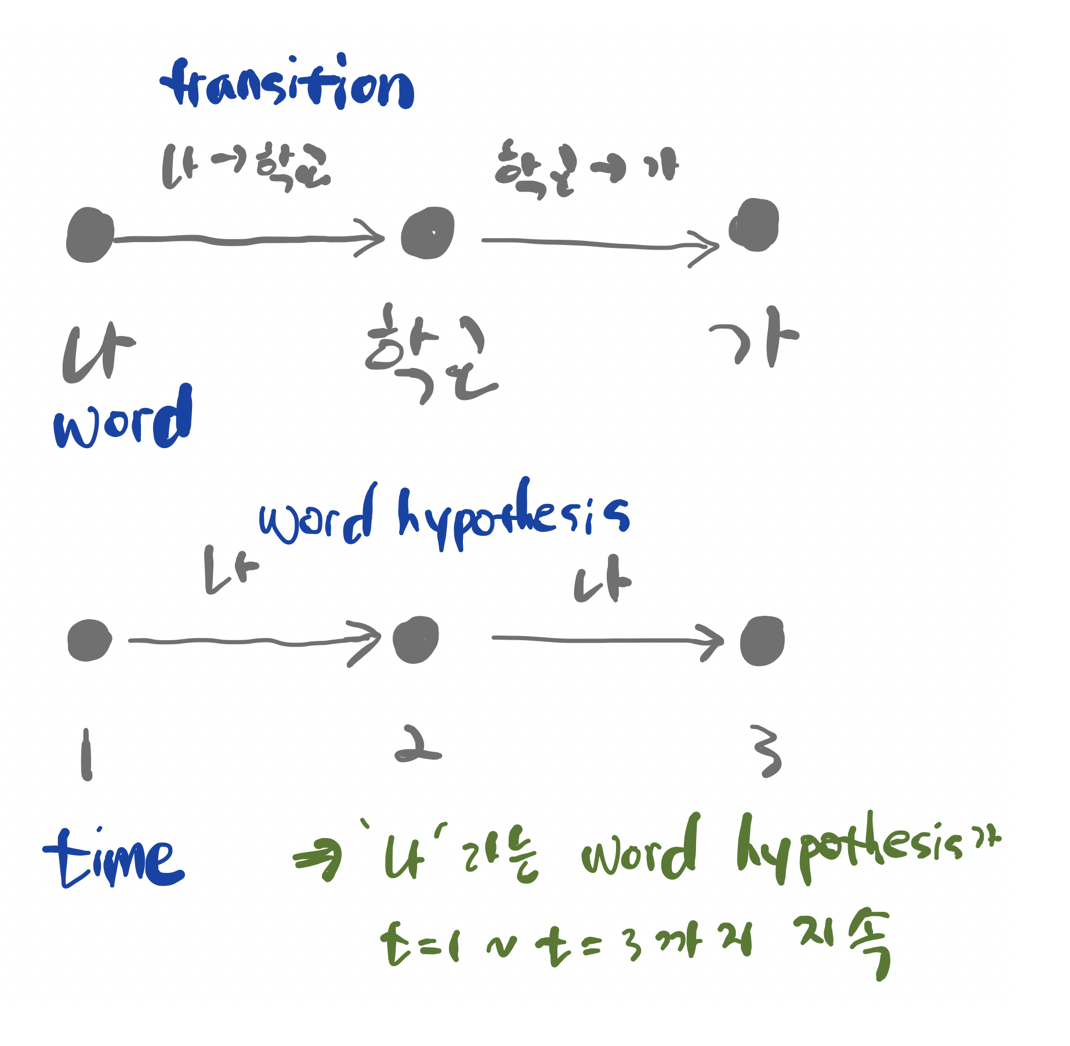 transition
나→학교 학교→가
나 학교 가
word
word hypothesis
나 나
1 2 3
time
⇒ '나' 라는 word hypothesis가
t=1 ~ t=3 까지 지속